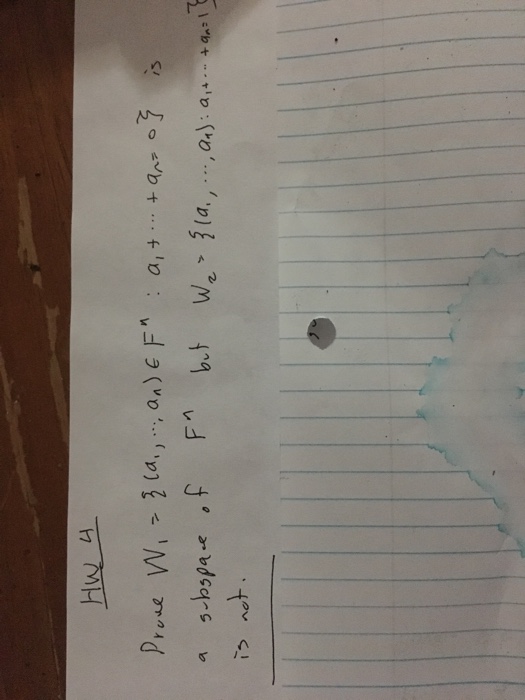 HW 4
Prove W₁ = {(a₁, ..., aₙ) ∈ Fⁿ : a₁ + ... + aₙ = 0} is
a subspace of Fⁿ but W₂ = {(a₁, ..., aₙ) : a₁ + ... + aₙ = 1}
is not.